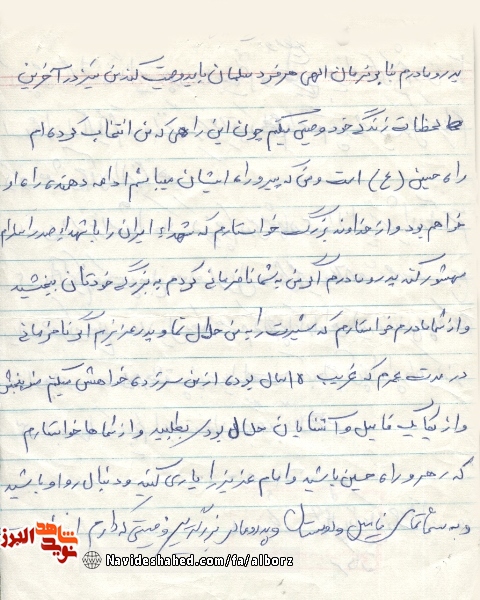 پدر و مادرم بنا بو فرمان الهی هر فرد مسلمان باید وصیت کند من نیز در آخرین
لحظات زندگی خود وصیتی میکنم چون این راهی که من انتخاب کرده ام
راه حسین (ع) است و من که پیرو راه ایشان میباشم ادامه دهنده راه او
خواهم بود و از خداوند بزرگ خواستارم که شهداء ایران را با شهداء صدر اسلام
محشور کند پدر و مادرم اگر من به شما نافرمانی کردم به بزرگی خودتان ببخشید
و از شما مادرم خواستارم که شیرت را به من حلال نما و پدر عزیزم اگر نافرمانی
در مدت عمرم که قریب ۱۸ سال بوده از من سر زده خواهش میکنم
و از یکایک فامیل و آشنایان حلال بودی بطلبید و از شماها خواستارم
که رهرو راه حسین باشید و امام عزیز را یاری کنید و دنبال رو او باشید
و به شما تمامی فامیل و دوستان و پدر و مادر بزرگوارم وصیتی که دارم
شاهد
نوید
البرز
Navideshahed.com/fa/alborz